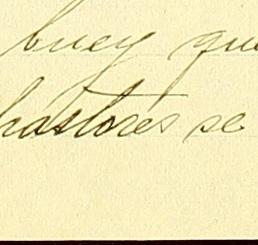 buey que
pastores se